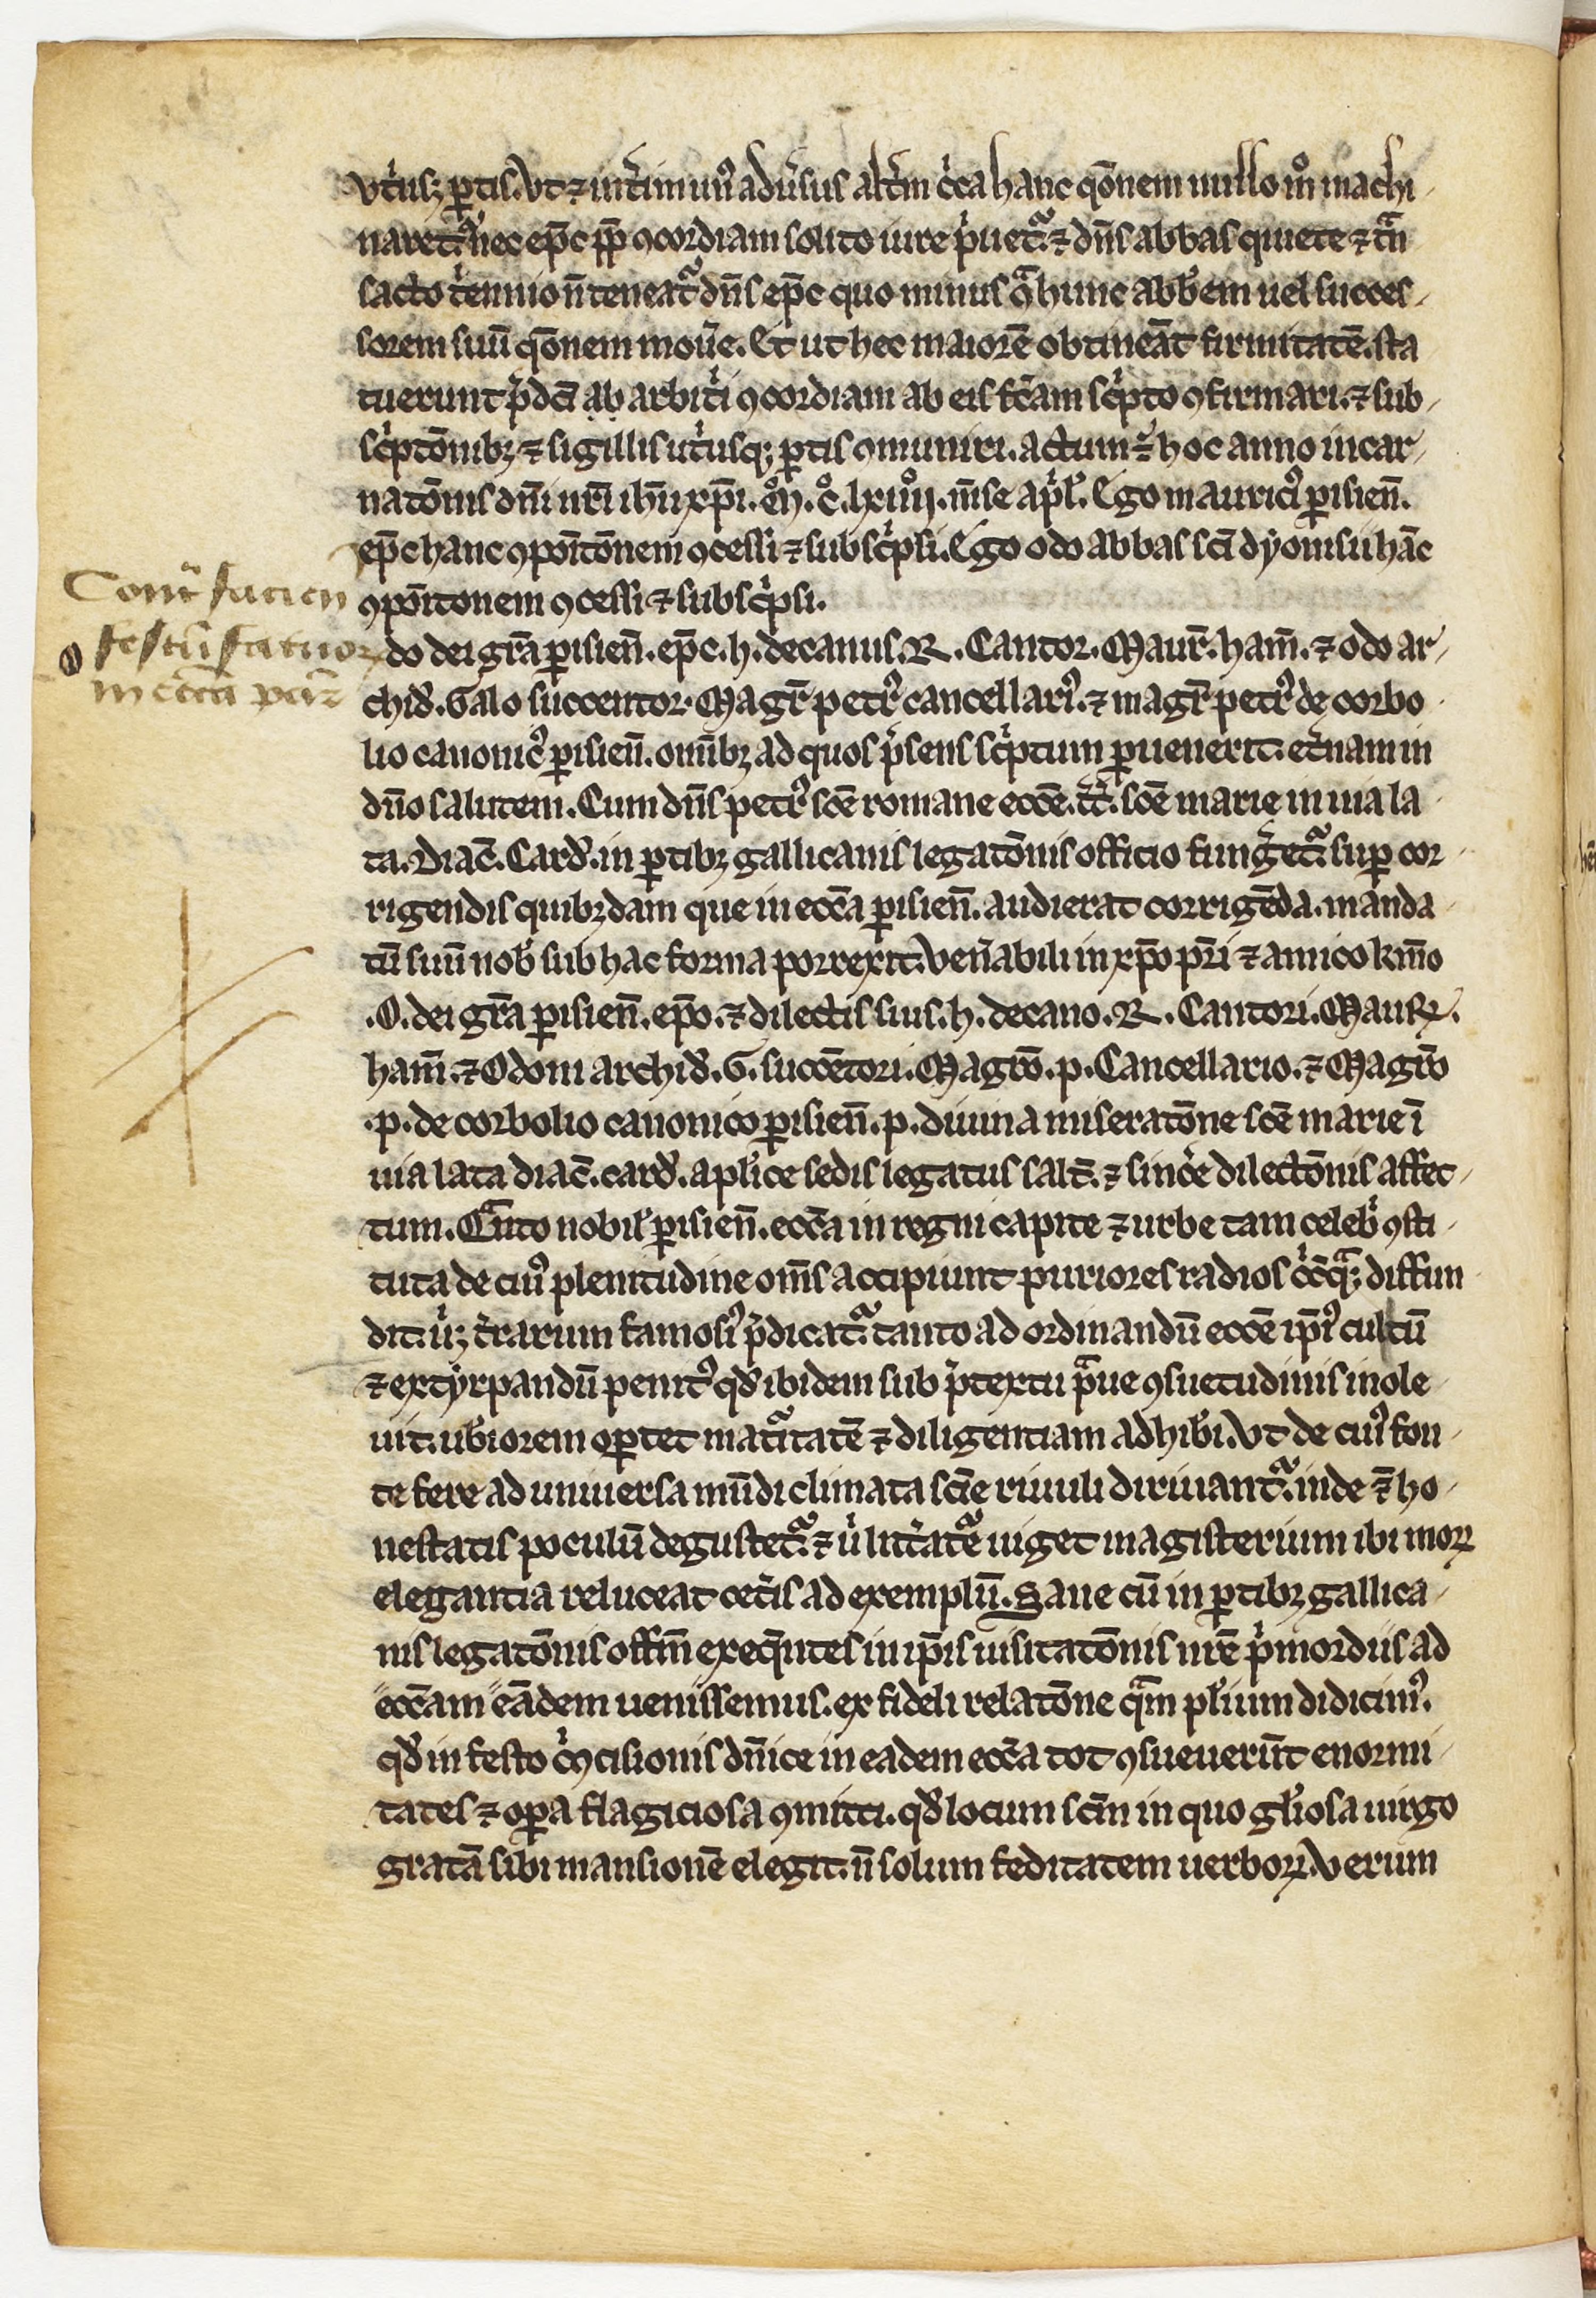 vt͛usꝫ ꝑtis. vt ⁊ int͛im unꝰ adu͛sus alt͛m cͥca hanc q̄onem nullo mͦ machi
naret᷑. nec ep̄c ꝓp̄ ꝯcordiam solito iure pͥuet᷑. ⁊ dn̄s abbas quiete ⁊ tᷓn
sacto tͥennio n̄ teneat᷑ dn̄s ep̄c quo minus ꝯᷓ hunc abb̄em uel succes
sorem suū q̄onem mou͛e. Et ut hec maiorē obtineāt firmitatē. sta
tuerunt p̄dc̄i ab arbit͛i ꝯcordiam ab eis fc̄am scͥpto ꝯfirmari. ⁊ sub
scͥptōnibꝫ ⁊ sigillis ut͛usqꝫ ꝑtis ꝯmuniri. actum ē hoc anno incar
natōnis dn̄i nr̄i ih̄u xp̄i. ͦM. ͦC. lxiiiͦj. m̄se ap͛l. Ego mauriciꝰ ꝑisien̄.
ep̄c hanc ꝯpoītōnem ꝯcessi ⁊ subscͥpsi. Ego odo abbas sc̄i dyonisii hāc
ꝯpoītonem ꝯcessi ⁊ subscͥpsi.
Contͣ facien
festū fatuoꝝ
in eccᷓa par̄
o
do dei gr̄a ꝑisien̄. ep̄c. h. decanus. R. Cantor. Maur̄. ham̄. ⁊ odo ar
chid̄. Galo succentor. Magr̄ petrꝰ cancellariꝰ. ⁊ magr̄ petrꝰ de corbo
lio canonicꝰ ꝑisien̄. omībꝫ ad quos p̄sens scͥptum ꝑuenerit. et͛nam in
dn̄o salutem. Cum dn̄s petrꝰ sc̄e romane ecc̄e. t̄t̄. sc̄e marie in uia la
ta. Diac̄. Card̄. in ꝑtibꝫ gallicanis legatōnis officio fung͛et᷑. suꝑ cor
rigendis quibꝫdam que in ecc̄a ꝑisien̄. audierat corrigēda. manda
tū suū nob̄ sub hac forma porrexit. ven͛abili in xp̄o pr̄i ⁊ amico km̄o
.O. dei gr̄a ꝑisien̄. ep̄o. ⁊ dilectis suis. h. decano. R. Cantori. Maurꝫ.
ham̄. ⁊ Odoni archid̄. G. succētori. Magr̄o. p. Cancellario. ⁊ Magr̄o
.p. de corbolio canonico ꝑisien̄. p. diuina miseratōne sc̄e marie ī
uia lata diac̄. card̄. apl̄ice sedis legatus salt̄. ⁊ sinc͛e dilectōnis affec
tum. Qᷓnto nobil̄ ꝑisien̄. ecc̄a in regni capite ⁊ urbe tam celebͥ ꝯsti
tuta de cuiꝰ plenitudine om̄s accipiunt puriores radios cͥcq̄ᷓꝫ diffun
dit. uͥꝫ t͛rarum famosiꝰ p̄dicat᷑. tanto ad ordinandū ecc̄e ip̄iꝰ cultū
⁊ extyrpandū penitꝰ qd̄ ibidem sub p̄textu pᷓue ꝯsuetudinis inole
uit. ub͛iorem oꝑtet mat᷑itatē ⁊ diligentiam adhib͛i. vt de cuiꝰ fon
te fere ad uniuersa mūdi climata sc̄ie riuuli diriuant᷑. inde ⁊ ho
nestatis poculū degustet᷑. ⁊ uͥ litt͛atᷓe uiget magisterium ibi moꝝ
elegantia reluceat cet͛is ad exemplū. Sane cū in ꝑtibꝫ gallica
nis legatōnis offīm exeq̄ntes in ip̄is uisitatōnis nr̄e pͥmordiis ad
ecc̄am eādem uenissemus. ex fideli relatōne qᷓm pl̄ium didicimꝰ.
qd̄ in festo cͥcūcisionis dn̄ice in eadem ecc̄a tot ꝯsueuerūt enormi
tates ⁊ oꝑa flagiciosa ꝯmitti. qd̄ locum sc̄m in quo gl̄iosa uirgo
gratā sibi mansionē elegit. n̄ solum feditatem uerboꝝ. verum